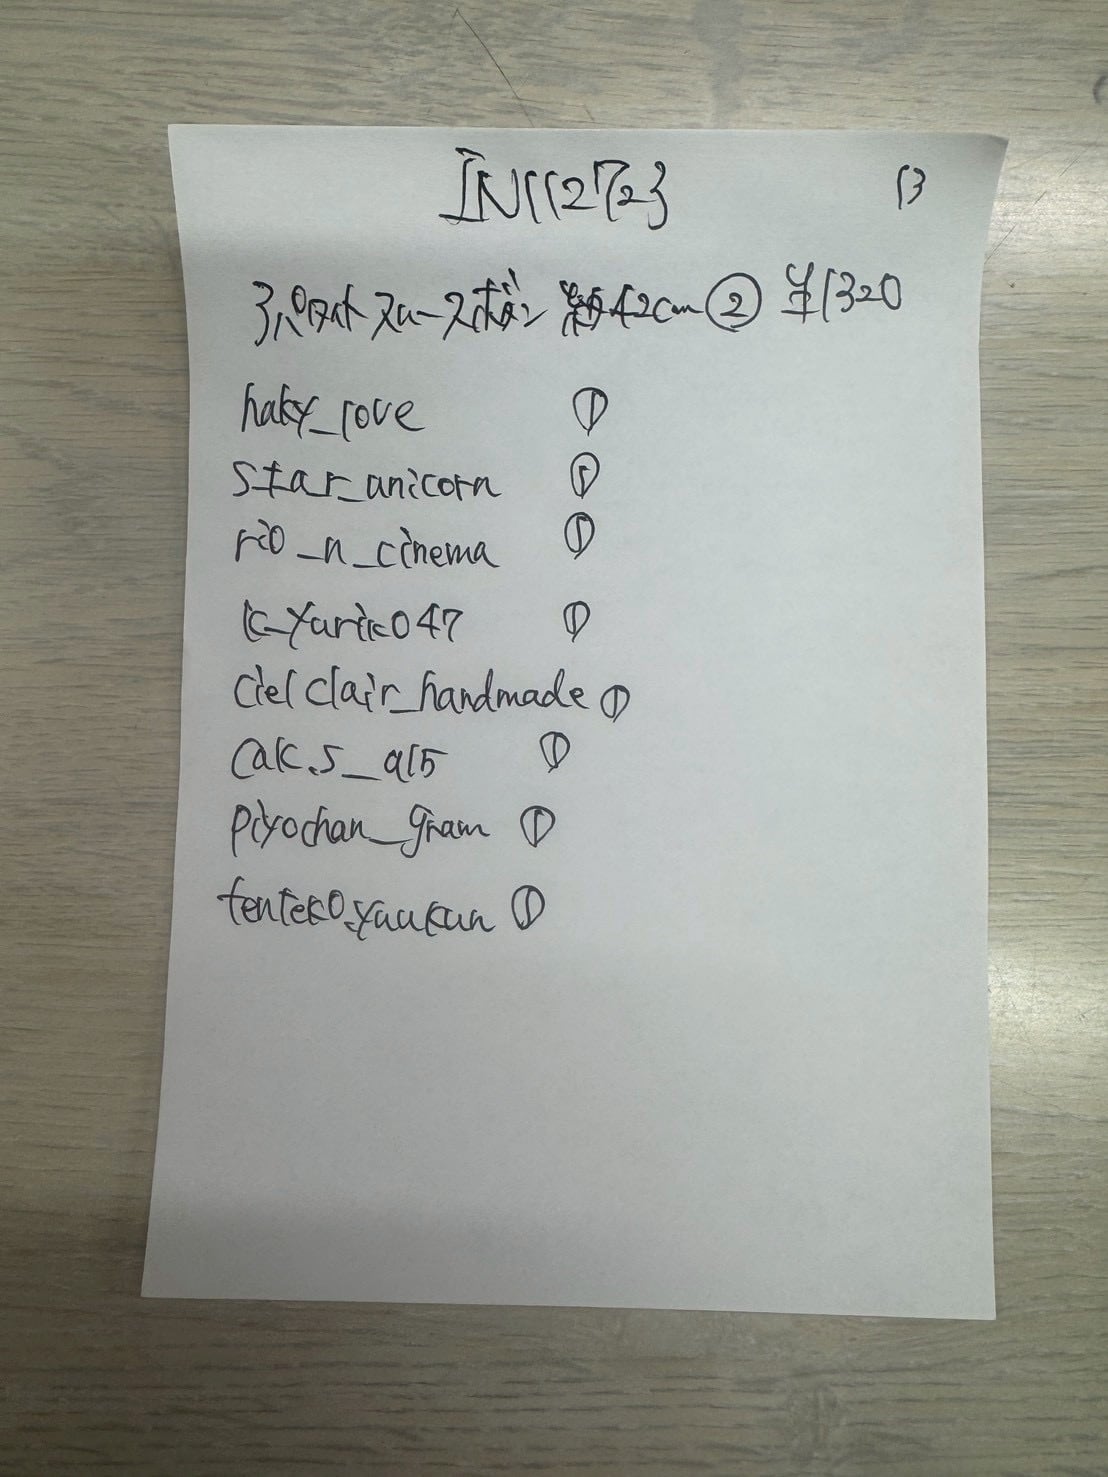 IN1127123 13
42cm ② ¥1320
haky_rove ①
star_unicorn ①
rio_n_cinema ①
k_yurik047 ①
cielclair_handmade ①
cak.s_a15 ①
piyochan_gram ①
tenteko.yuukun ①